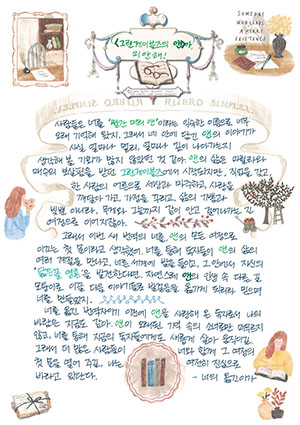 <그린게이블즈의 앤>아,
미안해!
SOMEONE
WHO LEADS
A MERRY
EXISTENCE
사람들은 너를 '빨간 머리 앤'이라는 익숙한 이름으로
오래 기억해 왔지. 그래서 네 안에 담긴 앤의 이야기가
사실 얼마나 멀리, 얼마나 깊이 나아가는지
생각해 볼 기회가 많지 않았던 것 같아. 앤의 삶은 마릴라와
매슈의 보살핌을 받던 그린게이블즈에서 시작되지만, 직업을 갖고
한 사람의 어른으로 세상과 마주하고, 사랑을
깨달아 가고, 가정을 꾸리고, 삶의 기쁨과
이별
여정으로 이어지잖아.
그래서 이번 새 번역의 너를, 앤의 모든 여정으로
이끄는 첫 문이라고 생각했어. 너를 통해 독자들이 앤의 삶의
여러 계절을 만나고, 너른 세계에 발을 들이고, 그 안에서 자신의
발견한다면, 자연스레 앤의 인생 속 다른 길
이야기들로 발걸음을 옮기게 되리라 믿으며
너를 만들었지.
너를 옮긴 번역자이기 이전에 앤을 사랑해 온 독자로서 나의
바람은 지금도 같아. 앤이 오래된 기억 속의 소녀로만 머무르지
않고, 너를 통해 지금의 독자들에게도 새롭게 살아 움직이길.
그래서 더 많은 사람들이 너와 함께 그 여정의
첫 문을 열어 주길, 나는 여전히 진심으로
바라고 있단다. - 너의 옮긴이가